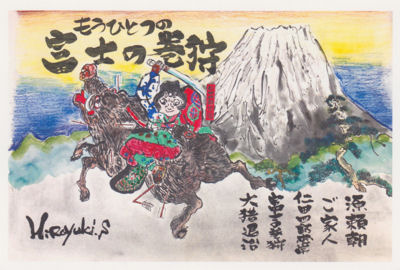 もうひとつの
富士の巻狩
源頼朝
ご家人
仁田四郎忠常
富士の巻狩
大猪退治
Hiroyuki.S